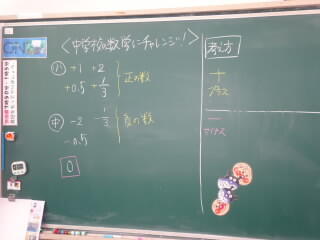 <中学校の数学にチャレンジ!>
小 +1 +2
+0.5 +1/3 } 正の数
中 -2 -1/3 } 負の数
-0.5
0
考え方
+
プラス
-
マイナス